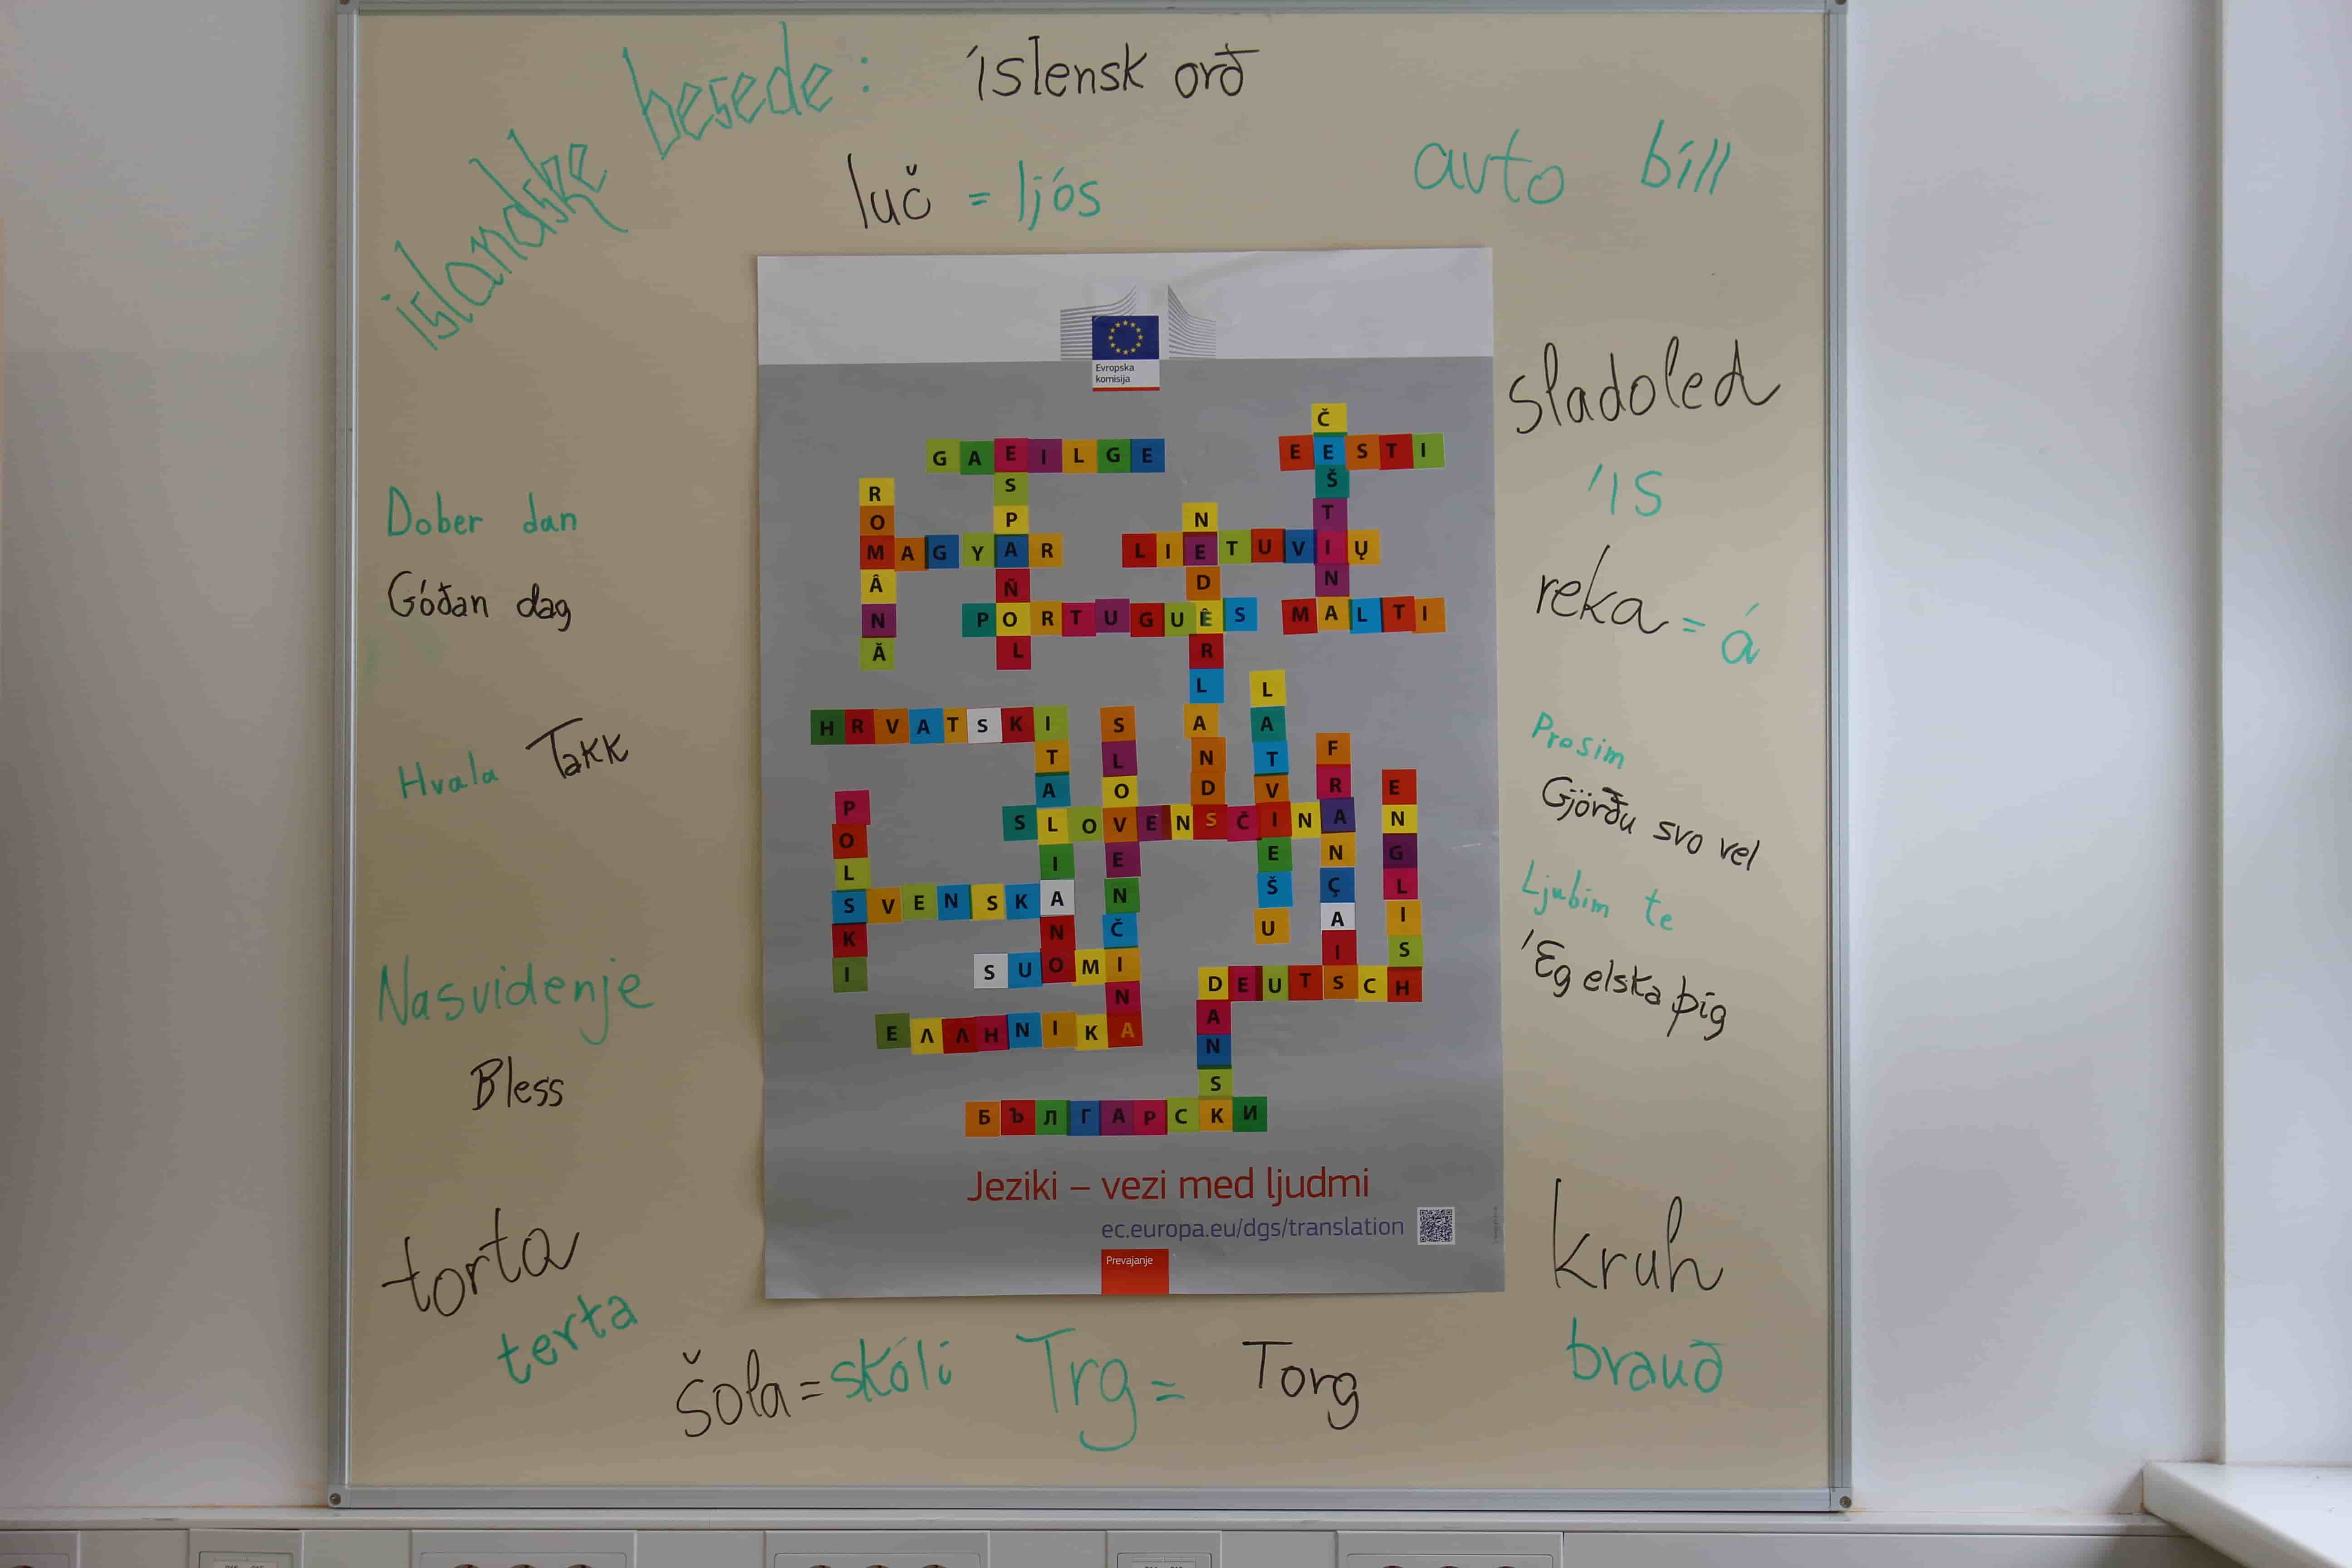 islandske besede:
íslensk orð
luč = ljós
avto bíll
Evropska
komisija
sladoled
ís
reka = á
Dober dan
Góðan dag
Hvala Takk
Nasvidenje
Bless
torta
terta
Prosim
Gjörðu svo vel
Ljubim te
Ég elska þig
kruh
brauð
GAEILGE
ČEŠTINA
EESTI
ROMÂNĂ
ESPAÑOL
MAGYAR
NEDERLANDS
LIETUVIŲ
PORTUGUÊS
MALTI
HRVATSKI
ITALIANO
SLOVENČINA
LATVIEŠU
FRANÇAIS
ENGLISH
POLSKI
SLOVENŠČINA
SVENSKA
SUOMI
DEUTSCH
DANSK
ΕΛΛΗΝΙΚΑ
БЪЛГАРСКИ
Jeziki – vezi med ljudmi
ec.europa.eu/dgs/translation
Prevajanje
šola = skóli
Trg = Torg